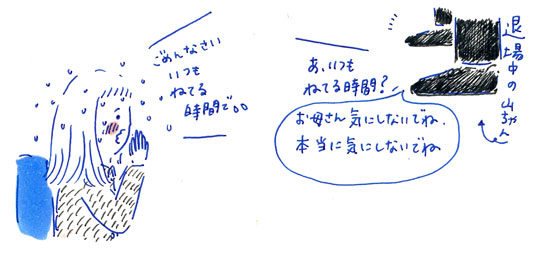 ごめんなさい
いつも
ねてる
時間で。。
あ、いつも
ねてる時間?
お母さん気にしないでね、
本当に気にしないでね
退場中の山ちゃん